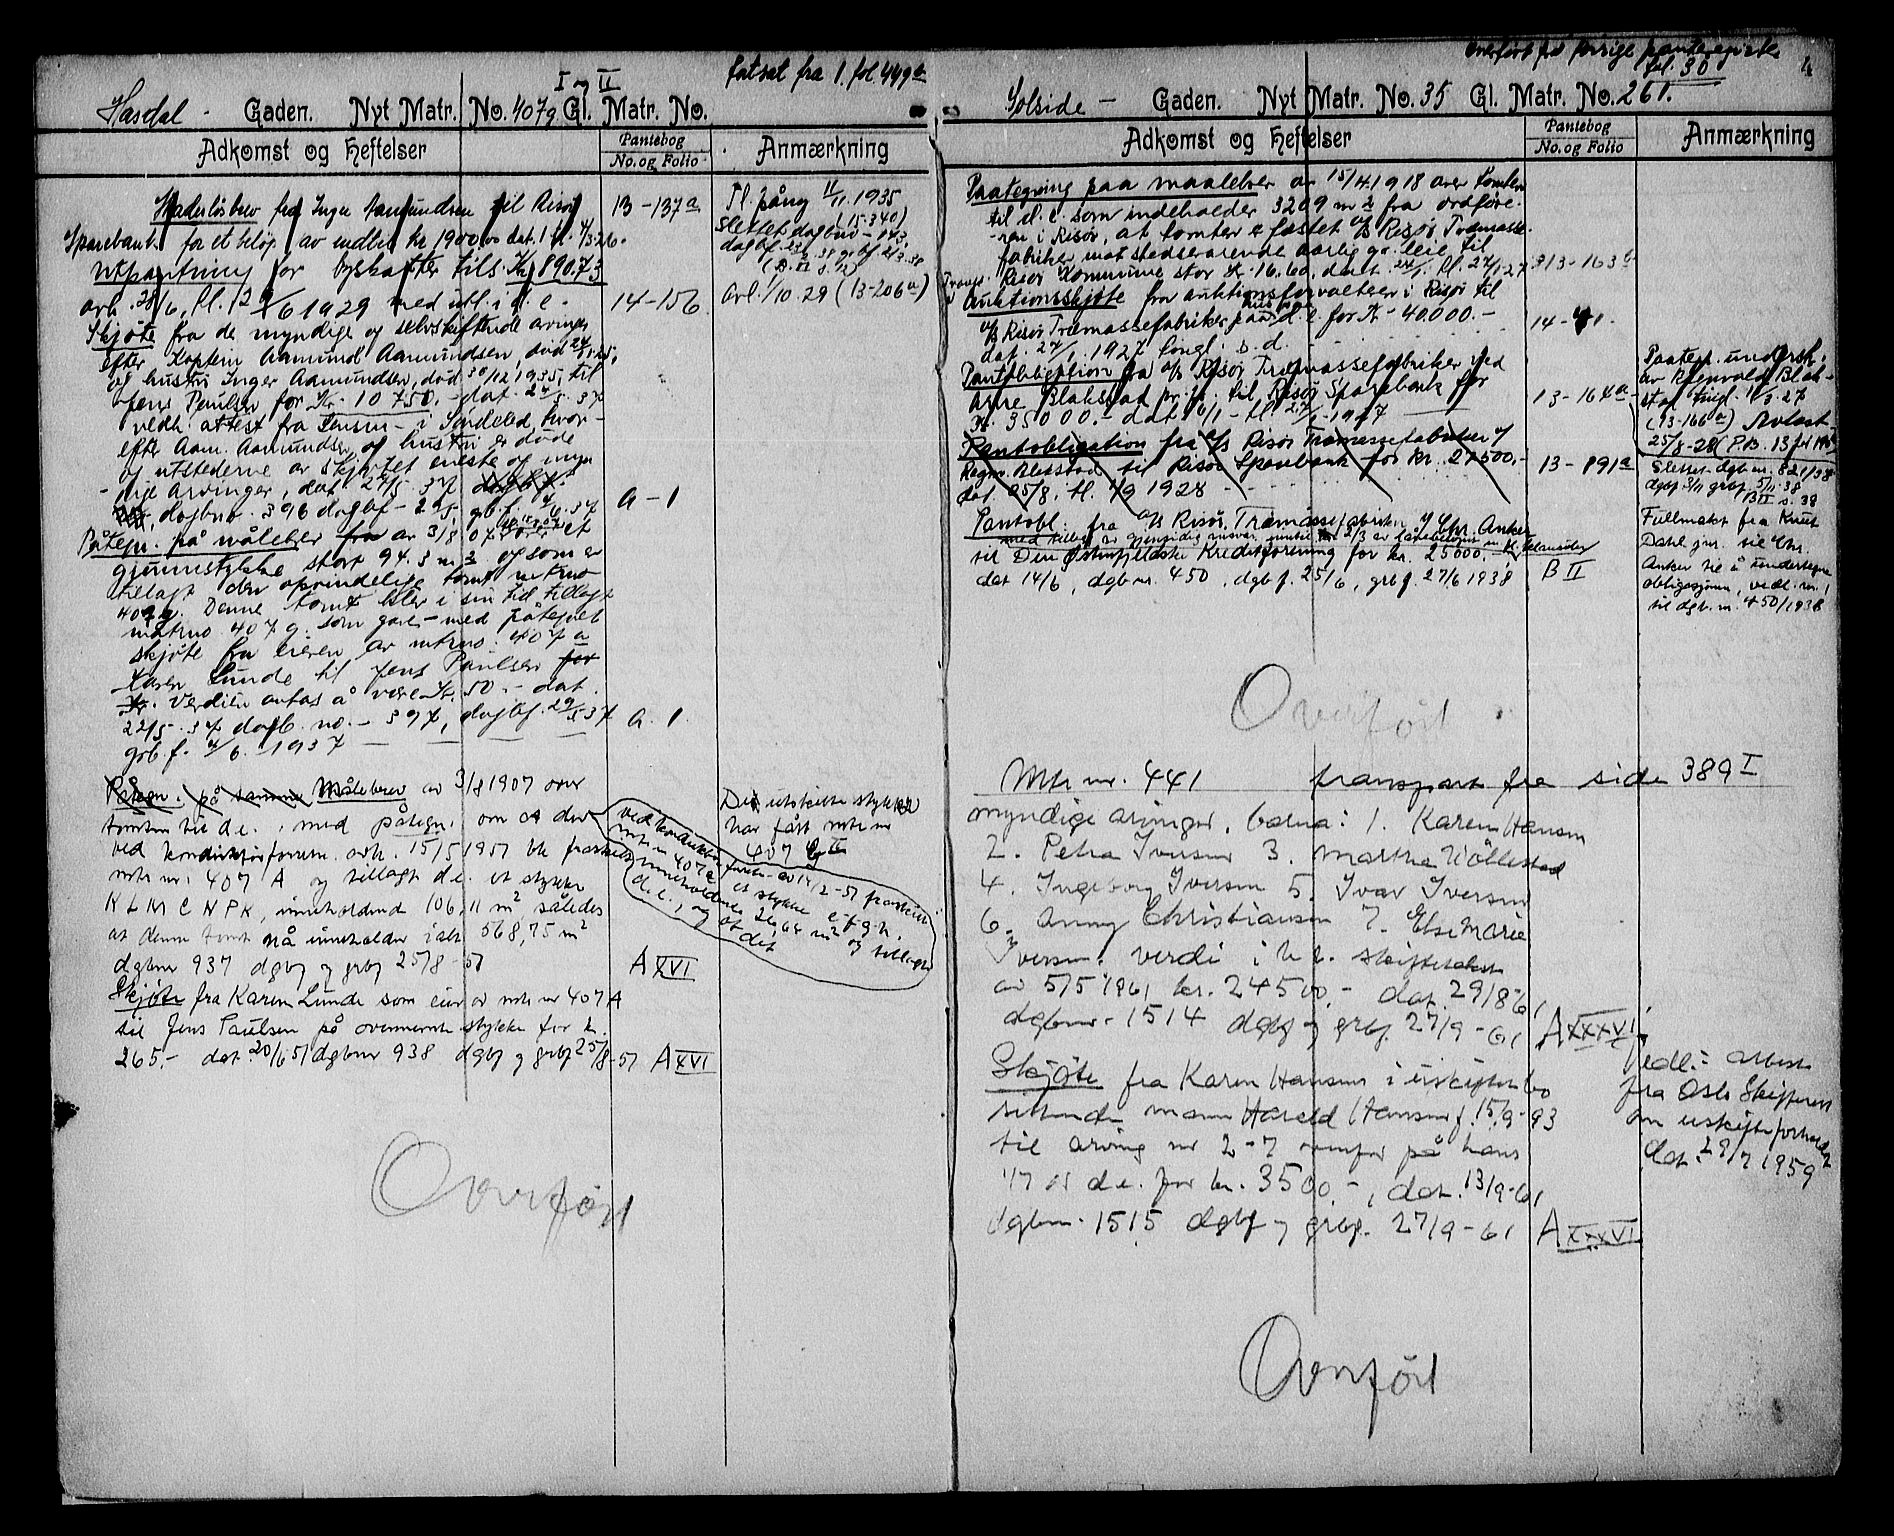 I og II
fortsat fra 1. fol 449a
Hasdal - Gaden. Nyt Matr. No. 407g Gl. Matr. No.
Adkomst og Heftelser
Pantebog
No. og Folio
Anmærkning
Skadesløsbrev fra Inger Aamundsen til Risør
Sparebank for et beløp av indtil kr 1900.00 dat. 1 tl. 4/3-26.
13-137a
Utpantning for byskatter tils. Kr. 890.73
avh. 28/6, tl. 29/6 1929 med utl. i d. e.
14-156
Skjøte fra de myndige og selvskiftende arvinger
efter Kaptein Aamund Aamundsen, død
og hustru Inger Aamundsen, død 30/12 1935, til
Jens Paulsen for Kr. 10750.- dat. 24/5. 37
vedh. attest fra Lensm. i Søndeled, hvor-
efter Aam. Aamundsen og hustru er døde
og utstederne av skjøtet eneste og myn-
dige arvinger, dat. 27/5. 37
dagbno. 396 dagbf. 29/5 gb. f. 4/6. 37
a-1
Påtegn. på målebr. av 3/8 07 over et
grunnstykke stort 94.3 m2 og som er
tillagt den oprindelige tomt matrno
407g. Denne tomt blev i sin tid tillagt
matrno. 407g. som gave - med påtegnet
skjøte fra eieren av mtrno. 407a
Karen Lunde til Jens Paulsen for
Kr. Verdien antas å være Kr. 50.- dat.
22/5. 37 dagb. no. - 397, dagbf. 29/5 37
a. 1.
grb. f. 4/6. 1937
Påtegn. på samme Målebrev av 3/8 1907 over
tomten til d.e., med påtegn. om at der
ved kondisjonsforretn. avh. 15/5 1957 ble fraskilt
mtr nr. 407 A og tillagt d.e. et stykke
K L M C N P K, inneholdend 106,11 m2 således
at denne tomt nå inneholder ialt 568,75 m2
dgbnr 937 dgbf og grbf 25/8-57
A XVI
Skjøte fra Karen Lunde som eier av mtr nr 407A
til Jens Paulsen på overnevnte stykke for kr.
265.- dat. 20/6 57 dgbnr 938 dgbf og grbf 25/8-57
A XVI
Tl. påny 11/11. 1935
(15-340)
Slettet dagbno - 143
avl. 1/10-29 (13-206a)
Det utskilte stykke
har fått mtr nr
407
fraskilt
mtr nr 407a et stykke e-f-g-h.
inneholdende 26,64 m2 og tillagt
d.e., og at det
Overført
Overført fra forrige panteregister
fol. 30
4
Solside - Gaden. Nyt Matr. No. 35 Gl. Matr. No. 261.
Adkomst og Heftelser
Pantebog
No. og Folio
Anmærkning
Paategning paa maalebrev av 15/4 1918 over tomten
til d. e. som indeholder 3209 m2 fra ordføre-
ren i Risør, at tomten er fæstet A/S Risør Træmasse-
fabriker mot stedsevarende aarlig gr. leie til
Risør Kommune stor Kr. 16.60, dat. 24/1. tl. 27/1 27
13-163a
Auktionsskjøte fra auktionsforvalteren i Risør til
A/S Risør Træmassefabriker paa d. e. for Kr - 40.000.-
14-41.
dat. 27/1. 1927 tingl. s. d.
Pantobligation fra A/S Risør Træmassefabriker ved
Arne Blakstad pr. pr. til Risør Sparebank for
Kr. 35000.- dat. 6/1 - tl. 27/1 - 1927
13-164a
Pantobligation fra A/S Risør Træmassefabriker v/
Ragnv. Blakstad til Risør Sparebank for kr. 27500.-
dat. 25/8. tl. 1/9 1928 -
13-891a
Pantobl. fra A/S Risør Træmassefabriker v/ Chr. Anker
til Den Østenfjellske Kreditforening for kr. 25000.-
dat 14/6, dgb nr. 450, dgb f. 25/6, grb f. 27/6 1938,
B II
Paategn. underskr.
av Ragnvald Blak-
stad tingl. 1/3-27
(13-166a) Avlast
25/8-28 (P.B. 13
Slettet dgb nr. 821/38
dgbf 3/11 grbf 5/11 38
B II s. 38
Fullmakt fra Knut
Dahl jnr. til Chr.
Anker til å undertegne
obligasjonen, vedl. nr. 1
til dgb. nr. 450/1938
Overført
Mtr nr. 441 transport fra side 389 I
myndige arvinger, barna: 1. Karen Hansen
2. Petra Iversen 3. Martha
4. Ingeborg Iversen 5. Ivar Iversen
6. Anny Christiansen 7. Else Marie
Iversen, verdi i h.h. skiftetakst
av 5/5 1961 kr. 24500.- dat. 29/8-61
dgbnr. 1514 dgbf og grbf. 27/9-61
A XXXVI
Skjøte fra Karen Hansen i uskiftet bo
sittende mann Harald Hansen f. 15/9-93
til arving nr 2-7 ovenfor på hans
1/7 av d.e. for kr. 3500.-, dat. 13/9-61
dgbnr. 1515 dgbf og grbf. 27/9-61
A XXXVI
Vedl: attest
fra Oslo Skifterett
om uskifteforholdet
dat. 29/7 1959
Overført